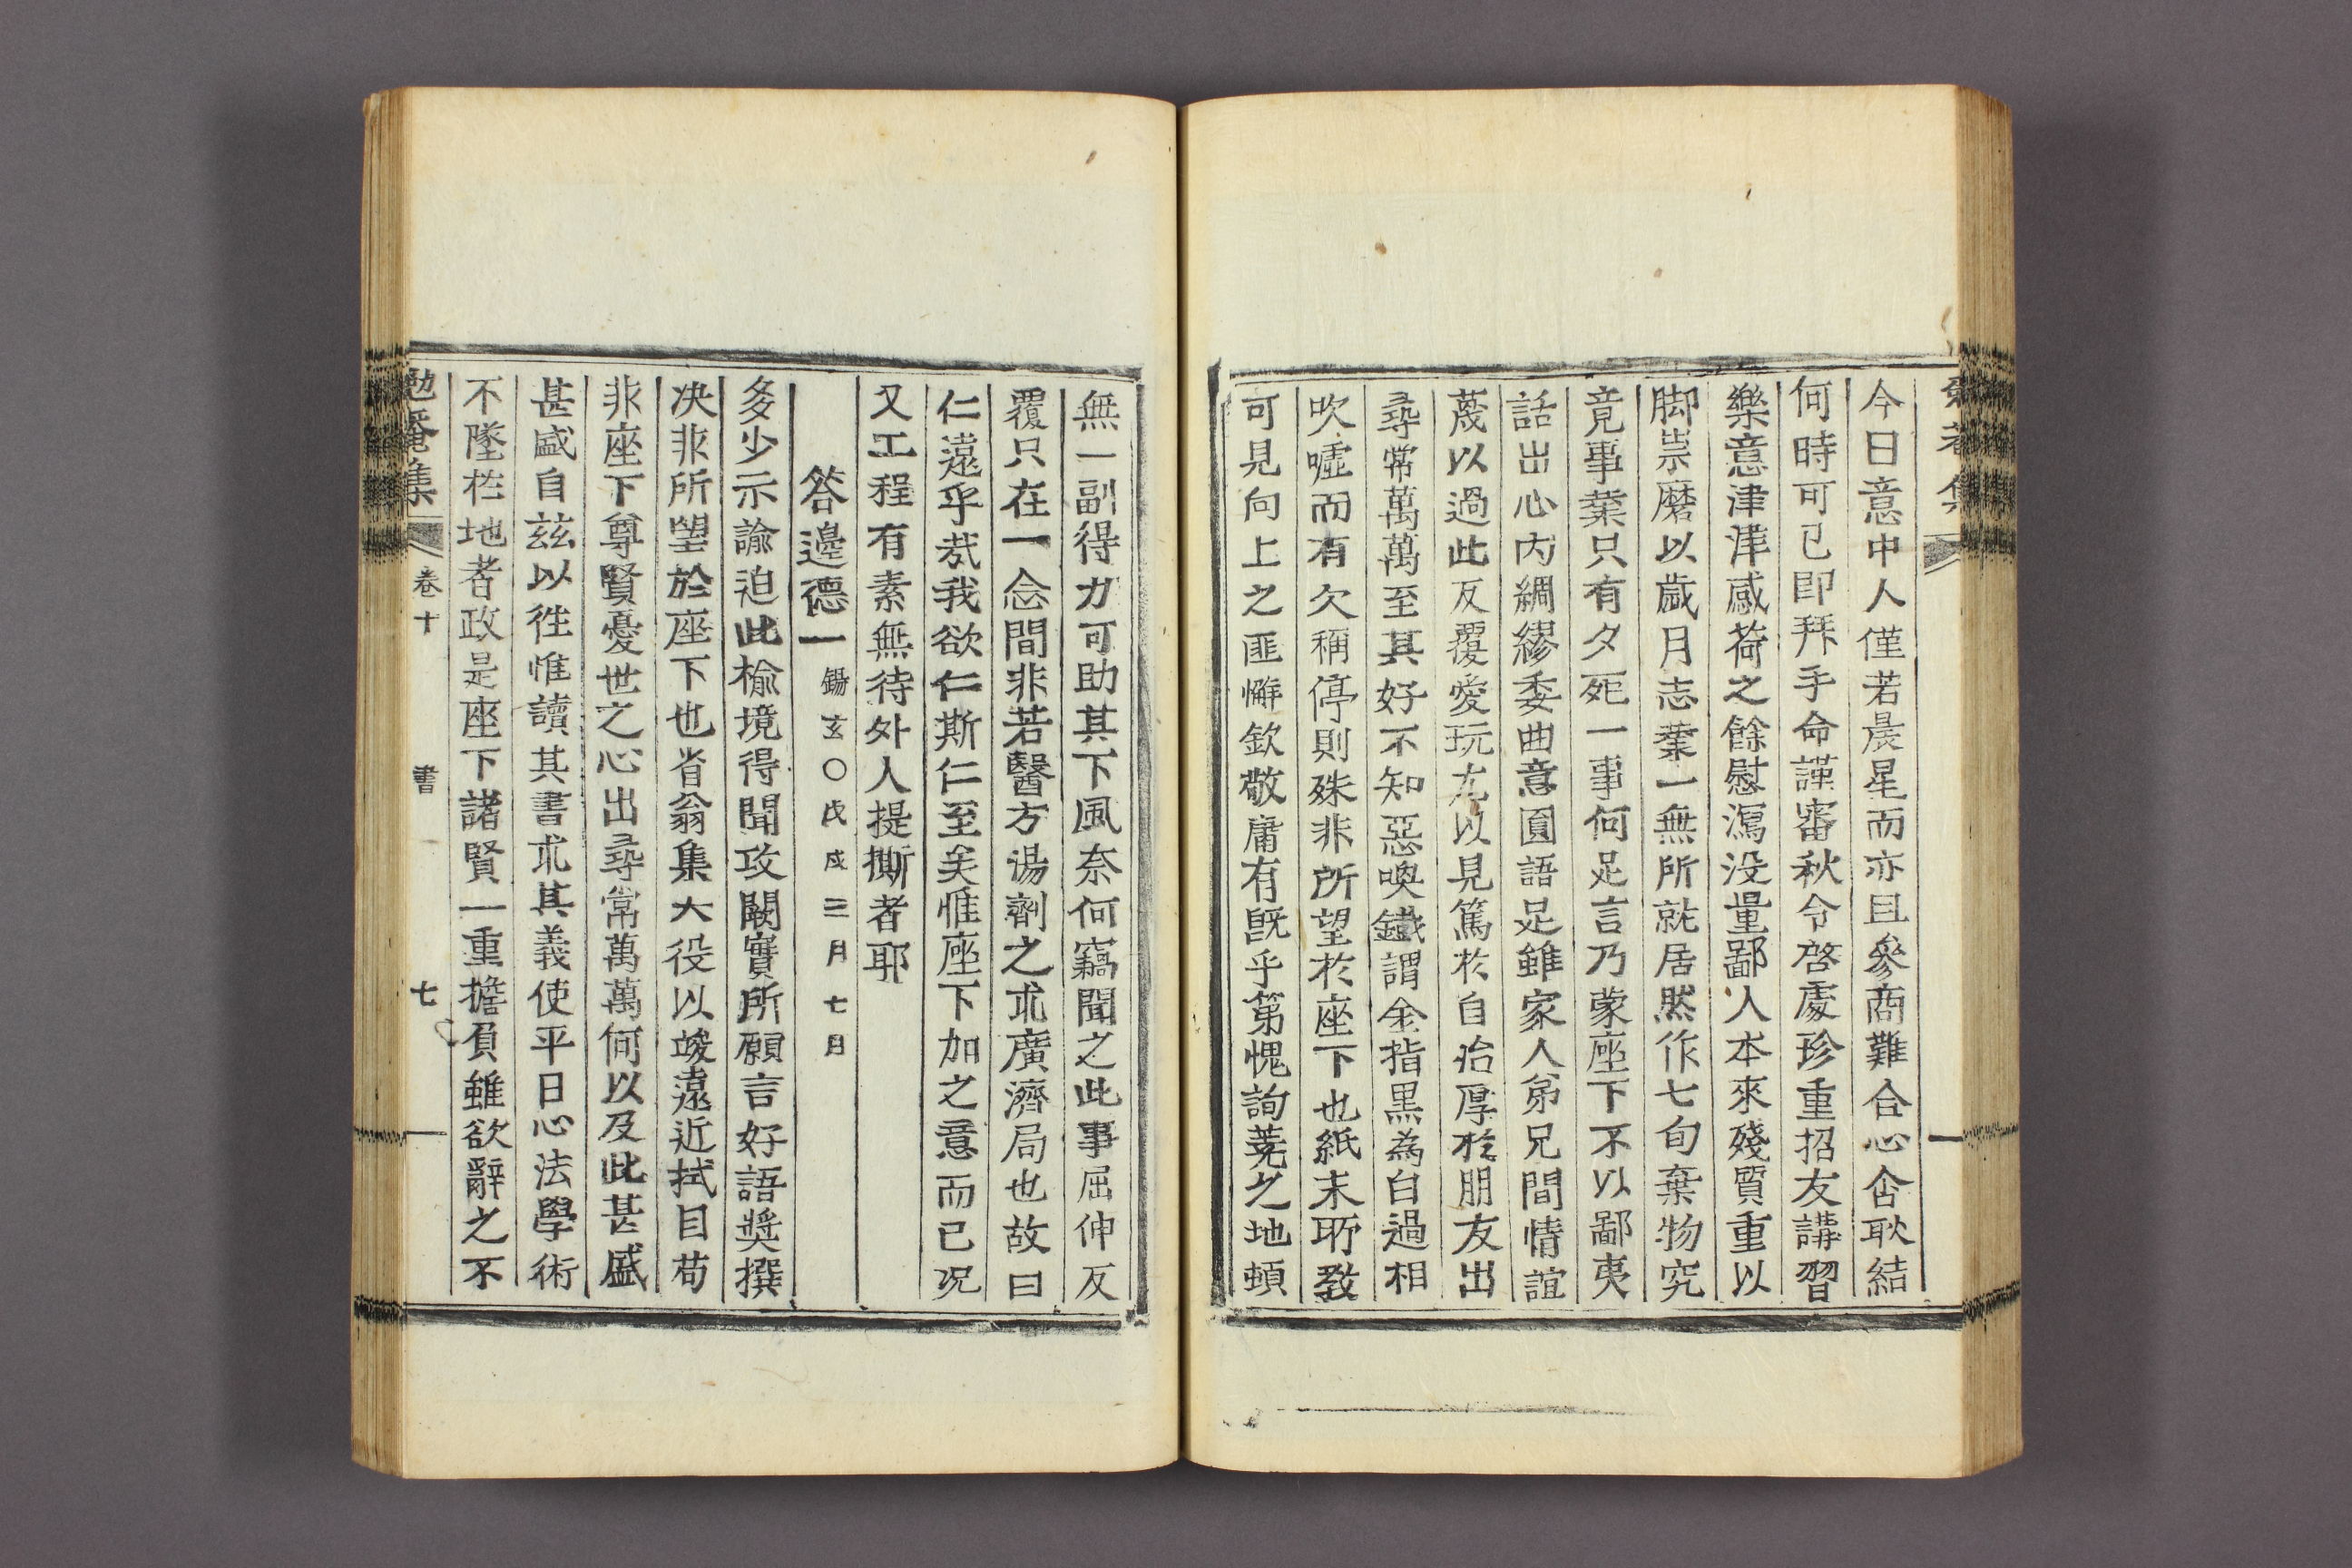 今日意中人僅若晨星而亦且參商難合心舍耿結
何時可已卽拜手命謹審秋令啓處珍重招友講習
樂意津津感荷之餘慰瀉没量鄙人本來殘質重以
脚祟磨以歲月志業一無所就居然作七旬棄物究
竟事業只有夕死一事何足言乃蒙座下不以鄙夷
話出心內綢繆委曲意圓語足雖家人弟兄間情誼
蔑以過此反覆愛玩尤以見篤於自治厚於朋友出
尋常萬萬至其好不知惡喚鐵謂金指黑為白過相
吹噓而有欠稱停則殊非所望於座下也紙末所敎
可見向上之匪懈欽敬庸有旣乎第愧詢蕘之地頓
無一副得力可助其下風奈何竊聞之此事屈伸反
覆只在一念間非若醫方湯劑之求廣濟局也故曰
仁遠乎㦲我欲仁斯仁至矣惟座下加之意而已况
又工程有素無待外人提撕者耶
答邊德一 錫玄○戊戌三月七日
多少示諭迫此楡境得聞攻闕實所願言好語奬撰
决非所望於座下也省翁集大役以竣遠近拭目苟
非座下尊賢憂世之心出尋常萬萬何以及此甚盛
甚盛自玆以徃惟讀其書求其義使平日心法學術
不墜在地者政是座下諸賢一重擔負雖欲辭之不
勉菴集 卷十 書 七